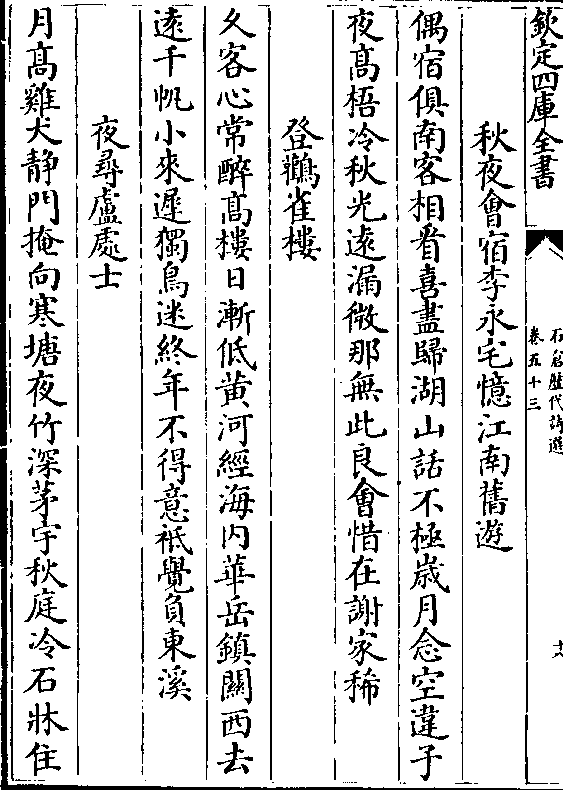 欽定四庫全書
石倉歷代詩選
卷五十三
秋夜會宿李永宅憶江南舊遊
偶宿俱南客相看喜盡歸湖山話不極歳月念空違子
夜髙梧冷秋光逺漏微那無此良會惜在謝家稀
登鸛雀樓
乆客心常醉髙樓日漸低黄河經海内華岳鎮闗西去
逺千帆小來遲獨鳥迷終年不得意祗覺負東溪
夜尋盧處士
月髙雞犬静門掩向寒塘夜竹深茅宇秋庭冷石牀住